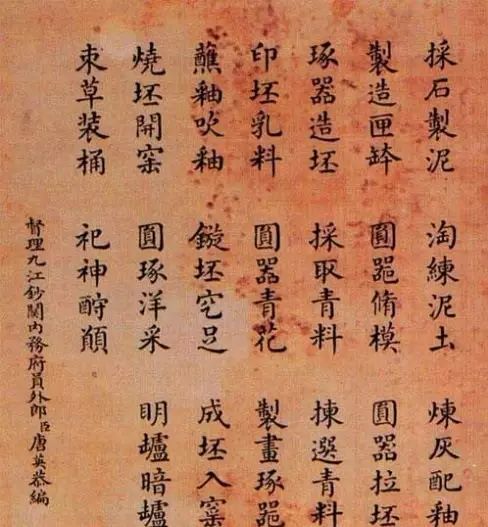 採石製泥 淘練泥土 煉灰配釉
製造匣缽 圓器脩模 圓器拉坯
琢器造坯 採取青料 揀選青料
印坯乳料 圓器青花 製畫琢器
蘸釉吹釉 鏇坯空足 成坯入窑
燒坯開窑 圓琢洋采 明爐暗爐
束草装桶 祀神酧願
督理九江鈔關內務府員外郎臣唐英恭編